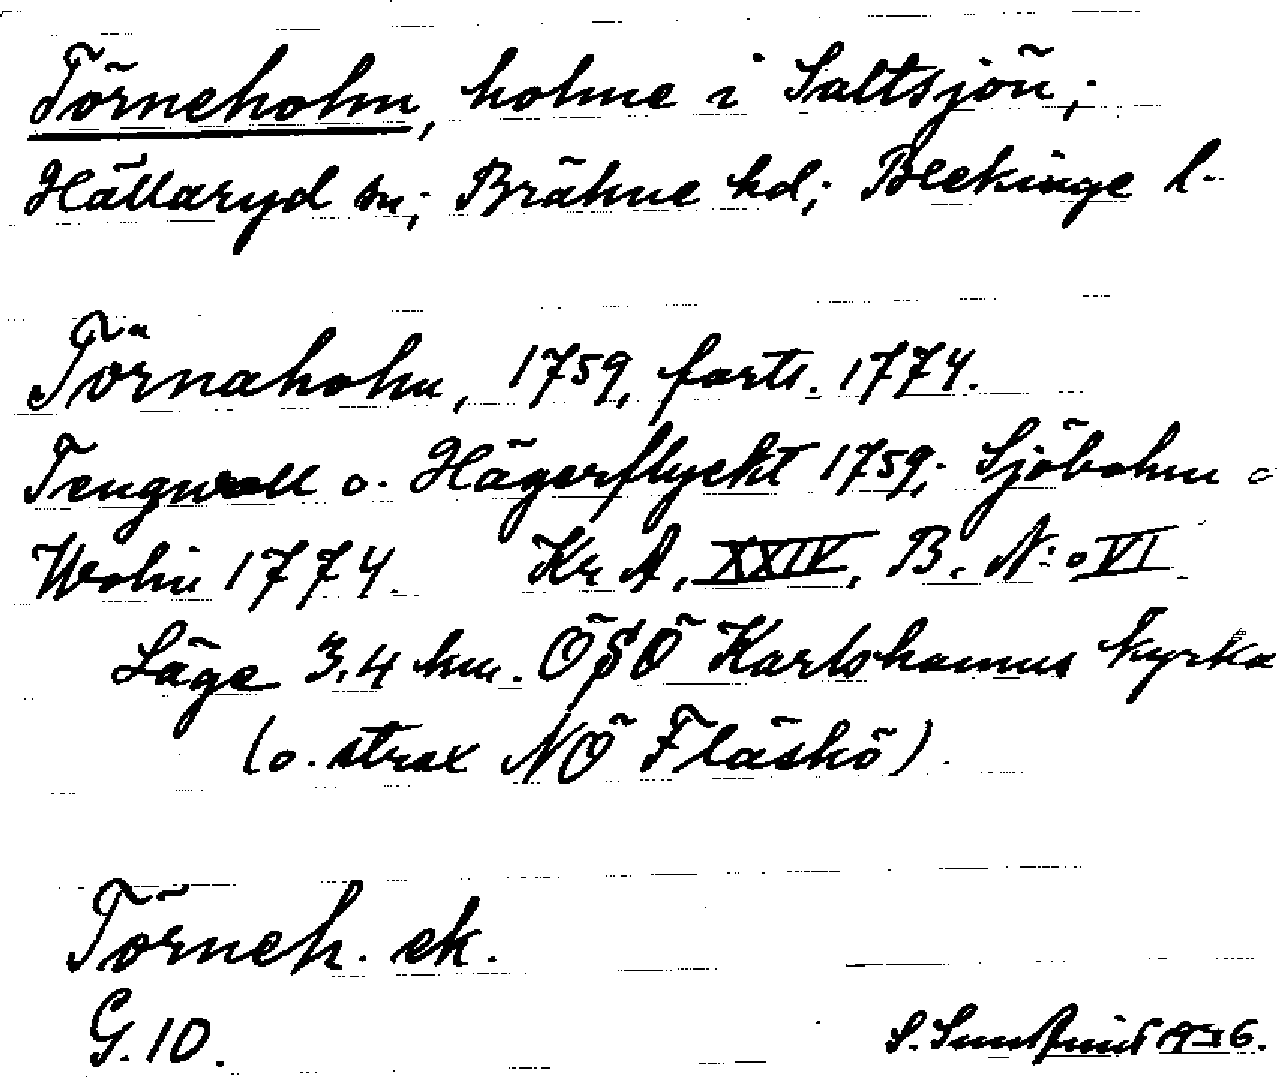 Törneholm, holme i Saltsjön;
Hällaryd sn; Bräkne hd; Blekinge l.
Törnaholm, 1759, forts. 1774.
Tengwall o. Hägerflyckt 1759; Sjöbohm o
Wohn 1774. Kr A, XXIV, B. N:o VI
Läge 3.4 km. ÖSÖ Karlshamns kyrka
(o. strax NÖ Fläskö).
Törneh. ek.
G. 10. S.